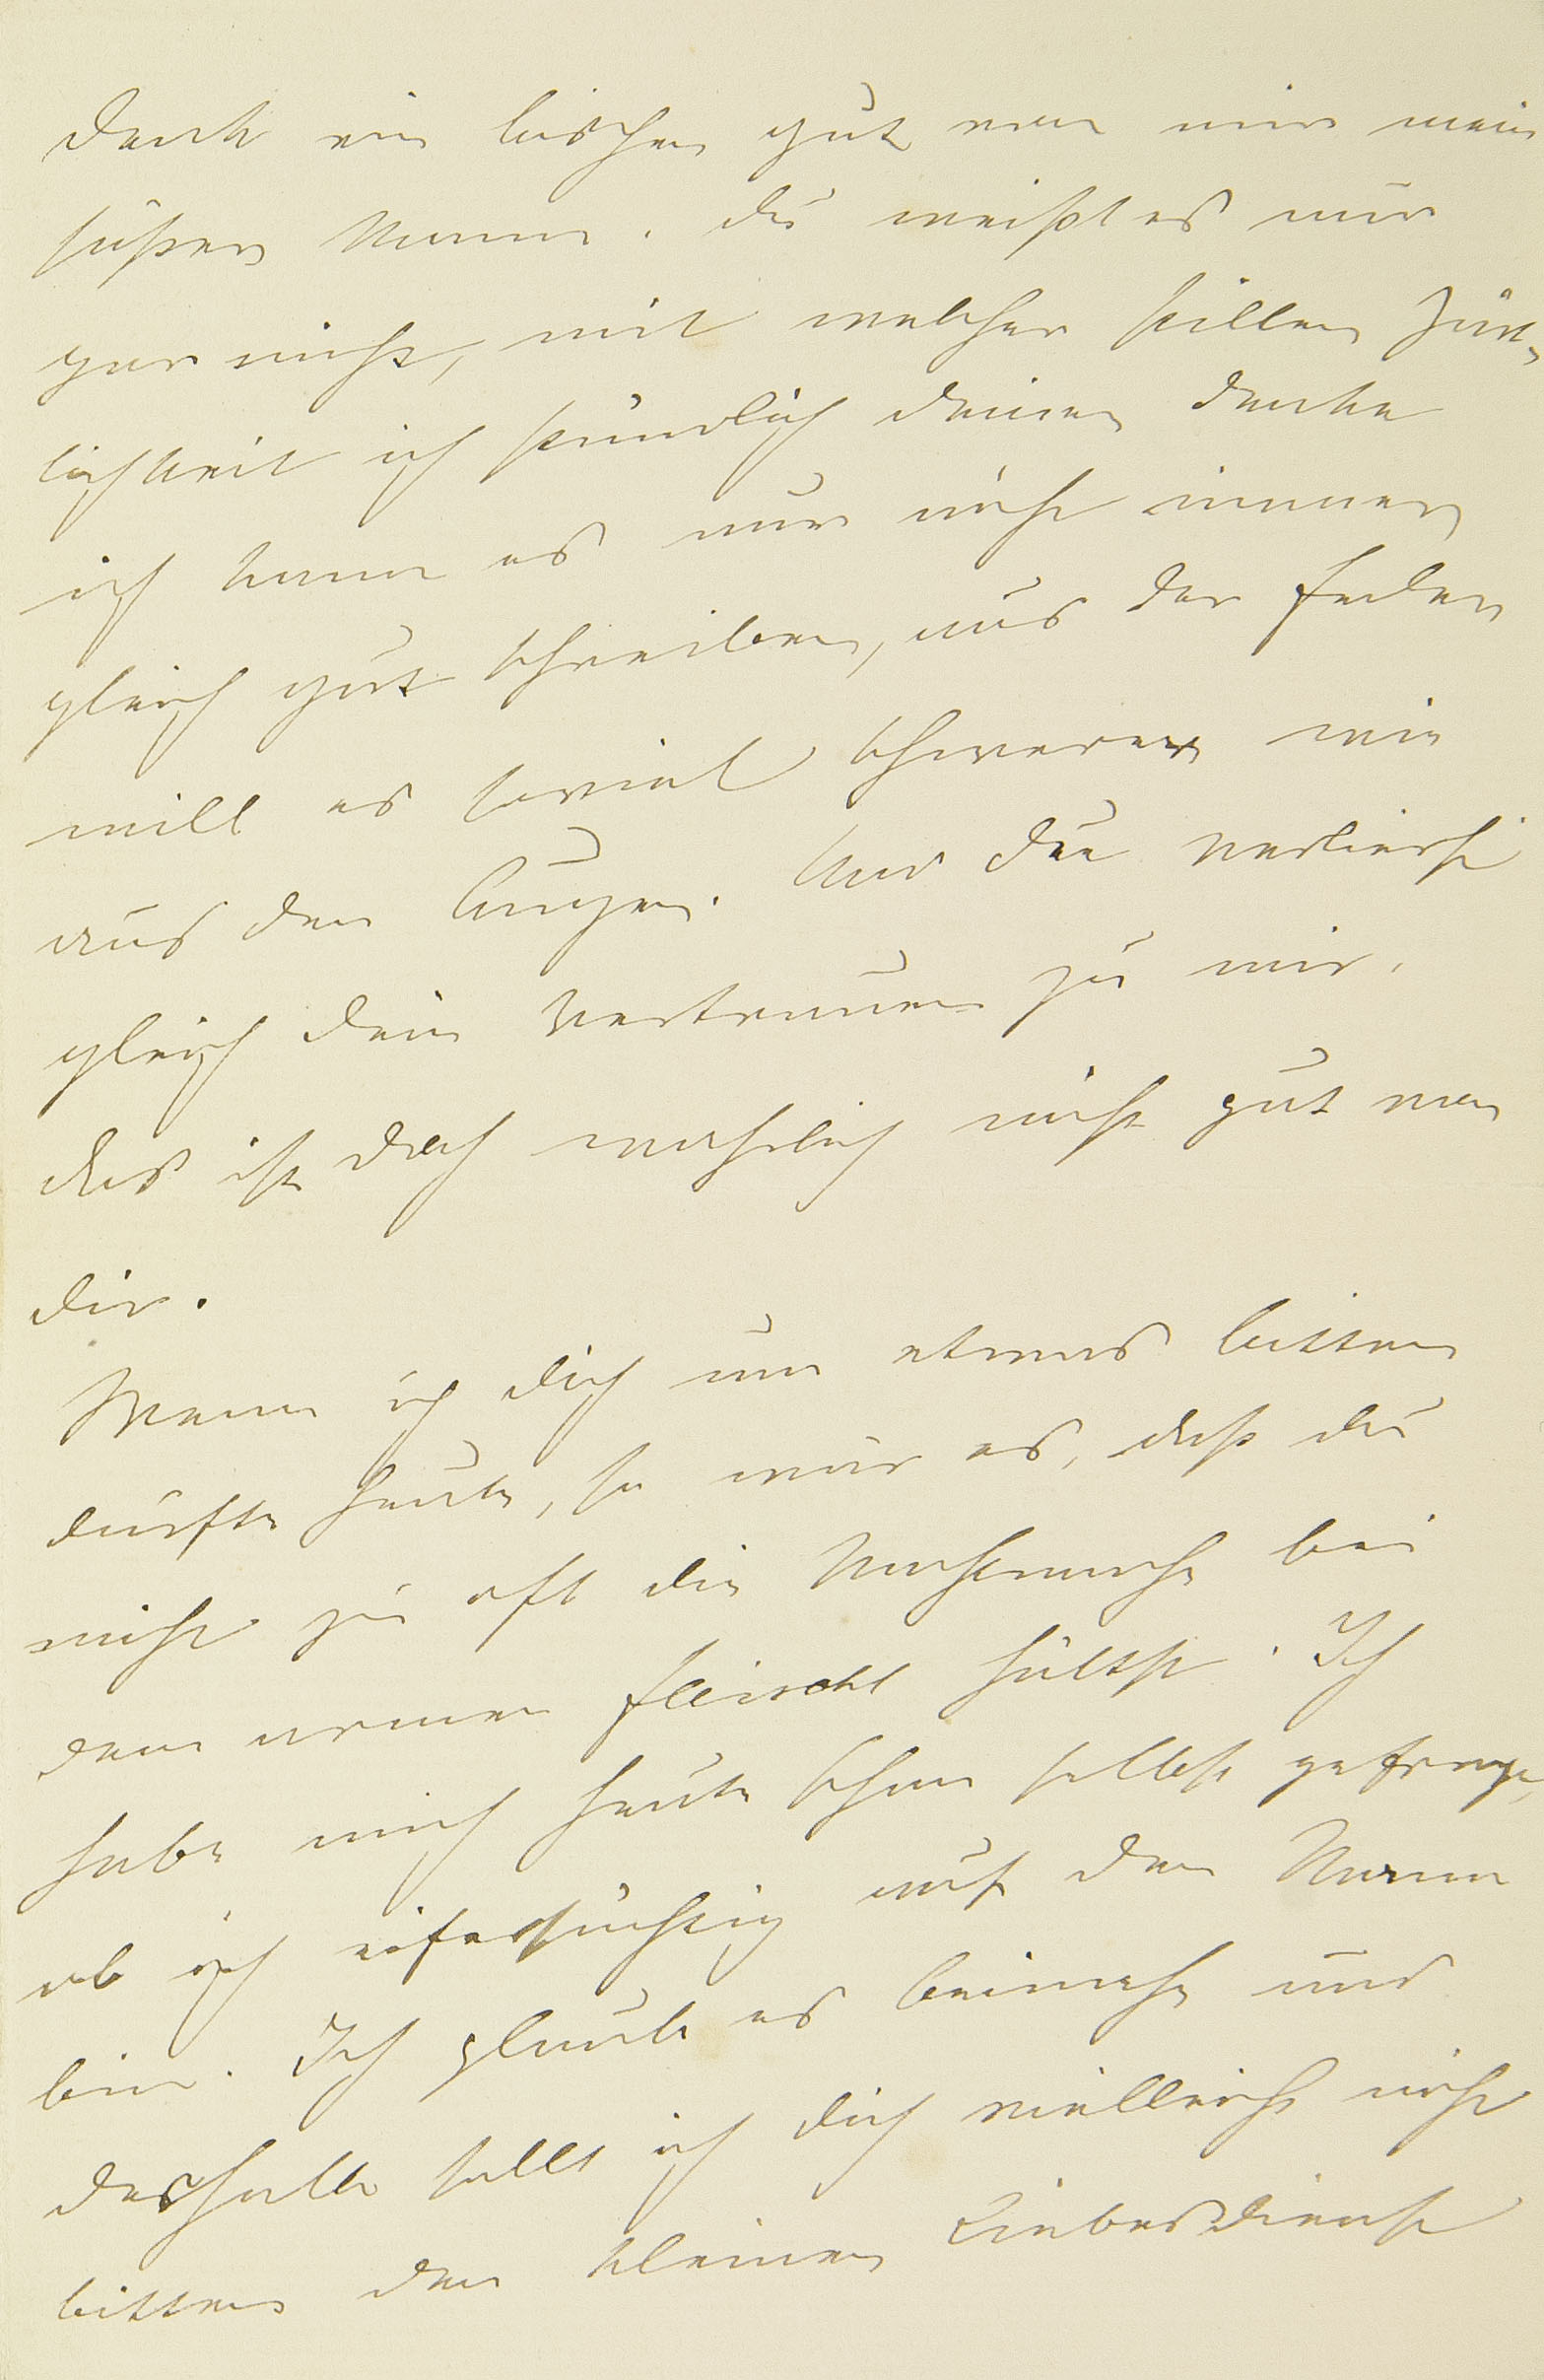 denk ein bischen gut von mir mein
süßer Mann. Du weißt es nur
gar nicht, mit welcher stillen Zärt-
lichkeit ich stündlich deiner denke
ich kann es nur nicht immer
gleich gut schreiben, aus der Feder
will es soviel schwerer wie
aus den Augen. Und du verlierst
gleich dein Vertrauen zu mir.
das ist doch wahrlich nicht gut von
dir.
Wenn ich dich um etwas bitten
dürfte heute, so wär es, daß du
nicht zu oft die Nachtwache bei
dem armen Fleischl hältst. Ich
habe mich heute schon selbst gefragt,
ob ich eifersüchtig auf den Mann
bin. Ich glaube es beinahe und
deshalb sollt ich dich vielleicht nicht
bitten den kleinen Liebesdienst